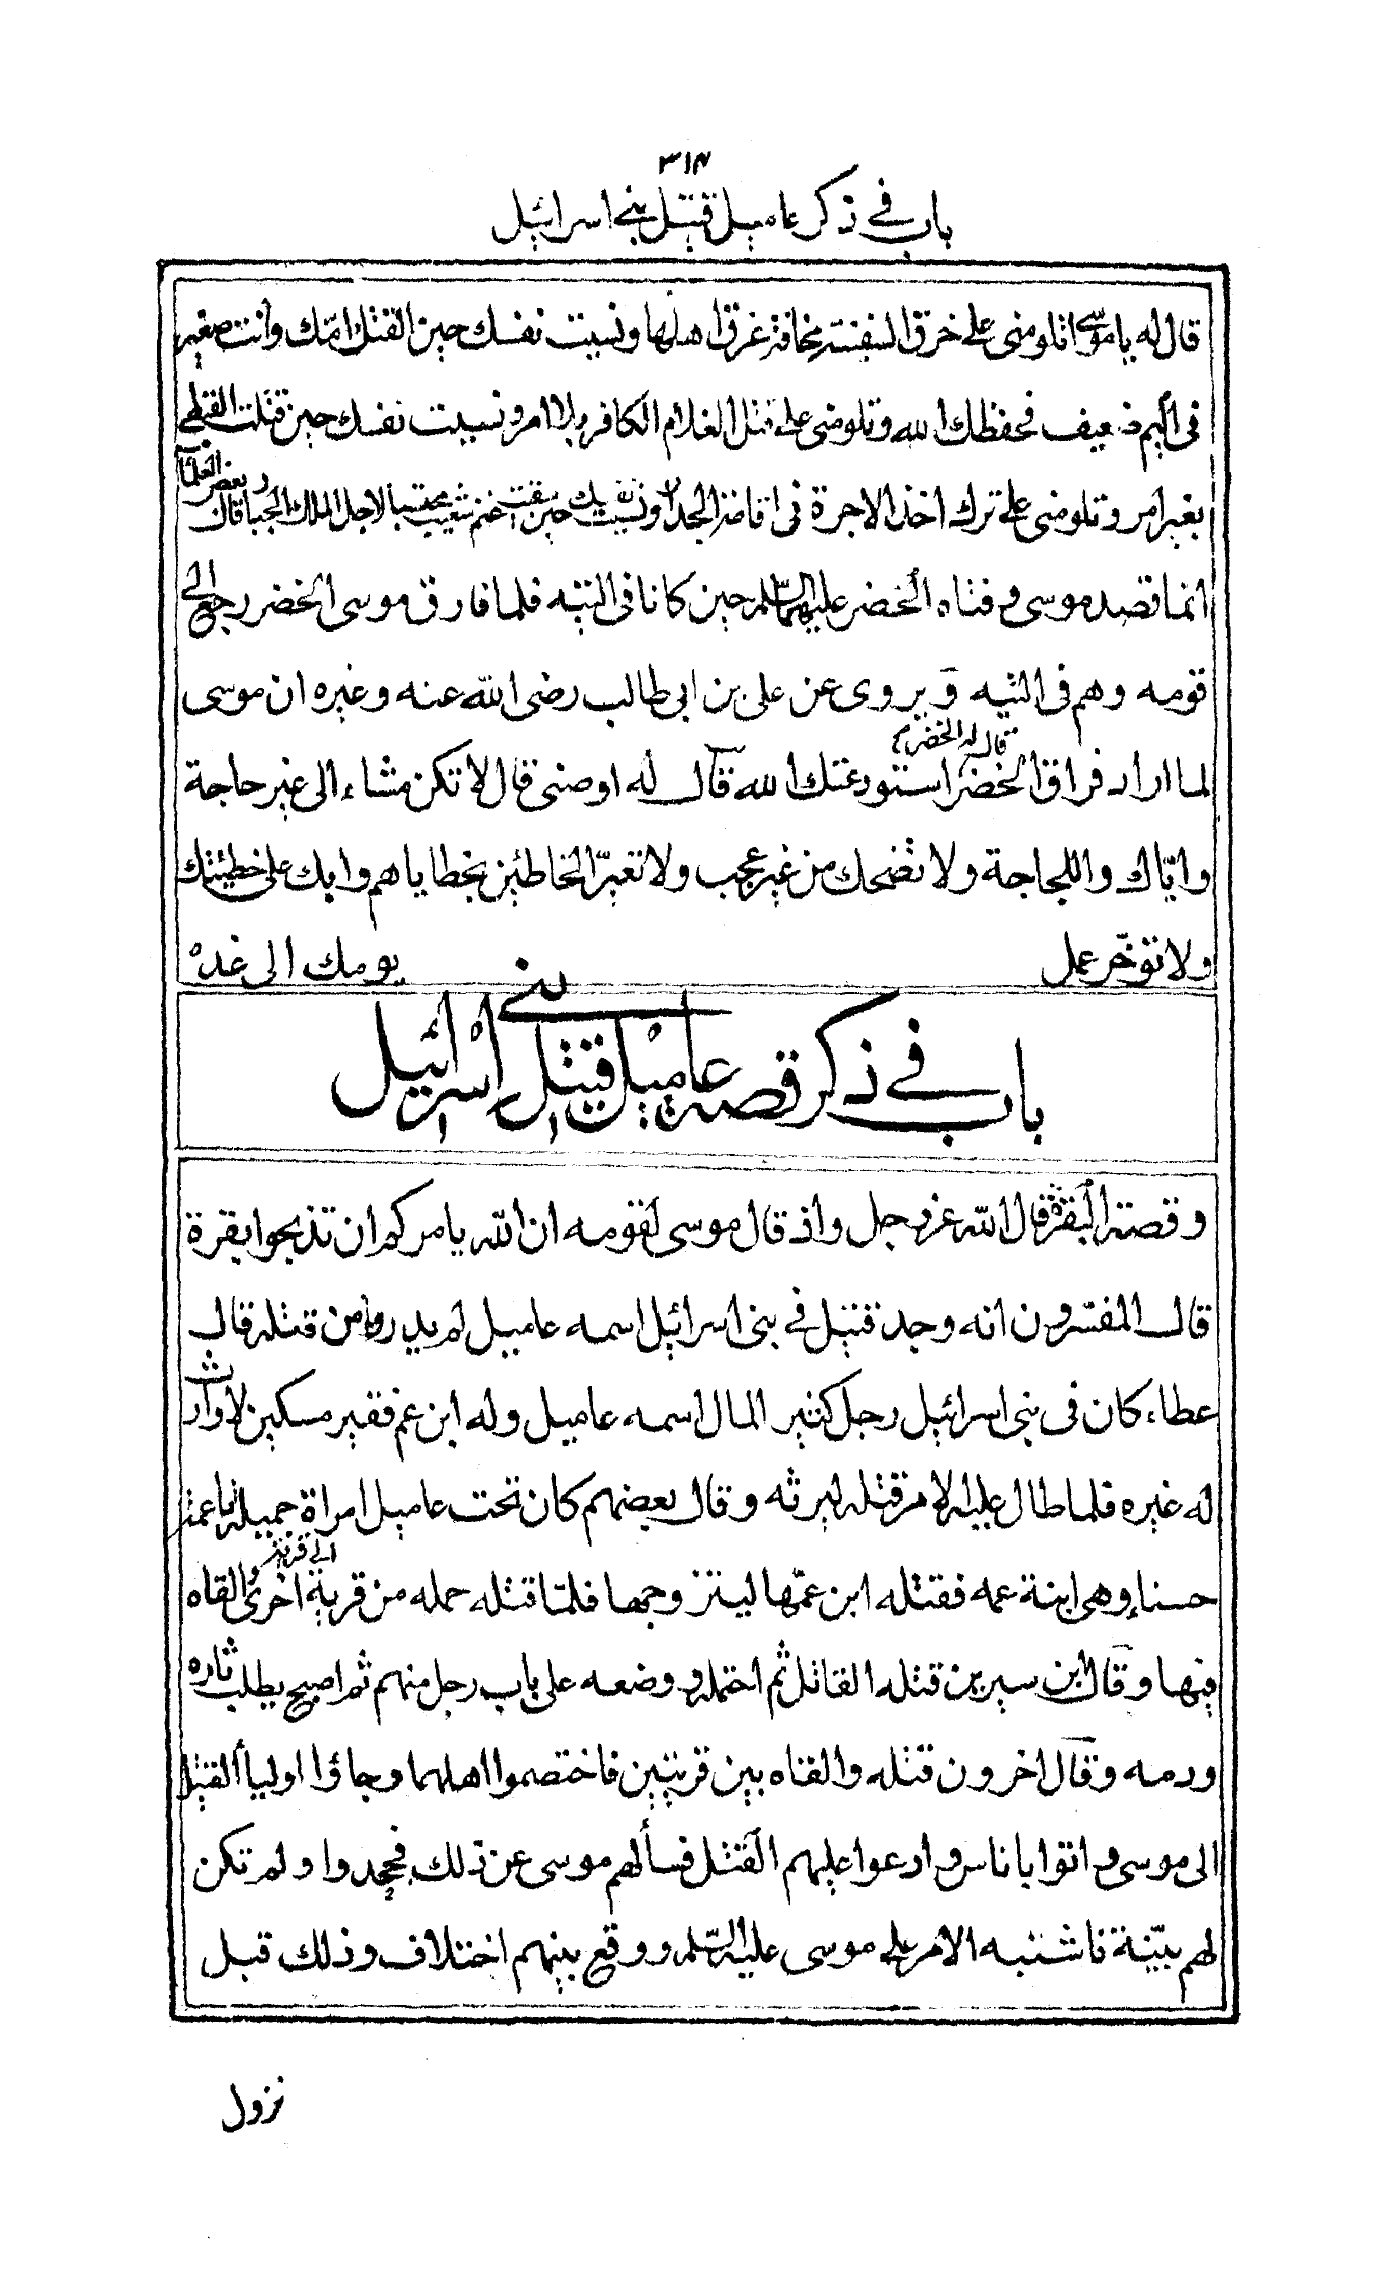 ٣١٤
باب في ذكر عاميل قتيل بني اسرائيل
قال له يا موسى اتلومنى على خرق السفينة مخافة غرق اهلها ونسيت نفسك حين القتك امّك وانت صغير
فى اليم ضعيف فحفظك الله وتلومنى على قتل الغلام الكافر بلا امر ونسيت نفسك حين قتلت القبطى
بغير امر وتلومنى على ترك اخذ الاجرة فى اقامة الجدار ونسيت حين سقيت غنم شعيب محتسبا لاجل الملك الجبار قال بعض العلماء
انما قصد موسى وفتاه الخضر عليهما السّلم حين كانا فى التيه فلما فارق موسى الخضر رجع الى
قومه وهم فى التيه ويروى عن على بن ابى طالب رضى الله عنه وغيره ان موسى
لما اراد فراق الخضر قال له الخضر استودعتك الله قال له اوصنى قال لا تكن مشاء الى غير حاجة
وايّاك واللجاجة ولا تضحك من غير عجب ولا تعيّر الخاطئين بخطاياهم وابك على خطيئتك
ولا تؤخّر عمل يومك الى غده
باب في ذكر قصة عاميل قتيل بني اسرائيل
وقصة البقرة قال الله عز وجل واذ قال موسى لقومه ان الله يامركم ان تذبحوا بقرة
قال المفسّرون انه وجد قتيل في بنى اسرائيل اسمه عاميل لم يدروا من قتله قال
عطاء كان فى بنى اسرائيل رجل كثير المال اسمه عاميل وله ابن عم فقير مسكين لا وارث
له غيره فلما طال عليه الامر قتله ليرثه وقال بعضهم كان تحت عاميل امراة جميلة ناعمة
حسناء وهى ابنة عمه فقتله ابن عمّها ليتزوجها فلمّا قتله حمله من قرية الى قرية اخرى القاه
فيها وقال ابن سيرين قتله القاتل ثم احتمله ووضعه على باب رجل منهم ثم اصبح يطلب ثاره
ودمه وقال اخرون قتله والقاه بين قريتين فاختصموا اهلهما وجاؤا اولياء القتيل
الى موسى واتوا باناس وادعوا عليهم القتل فسألهم موسى عن ذلك فجحدوا ولم تكن
لهم بيّنة فاشتبه الامر على موسى عليه السّلم ووقع بينهم اختلاف وذلك قبل
نزول